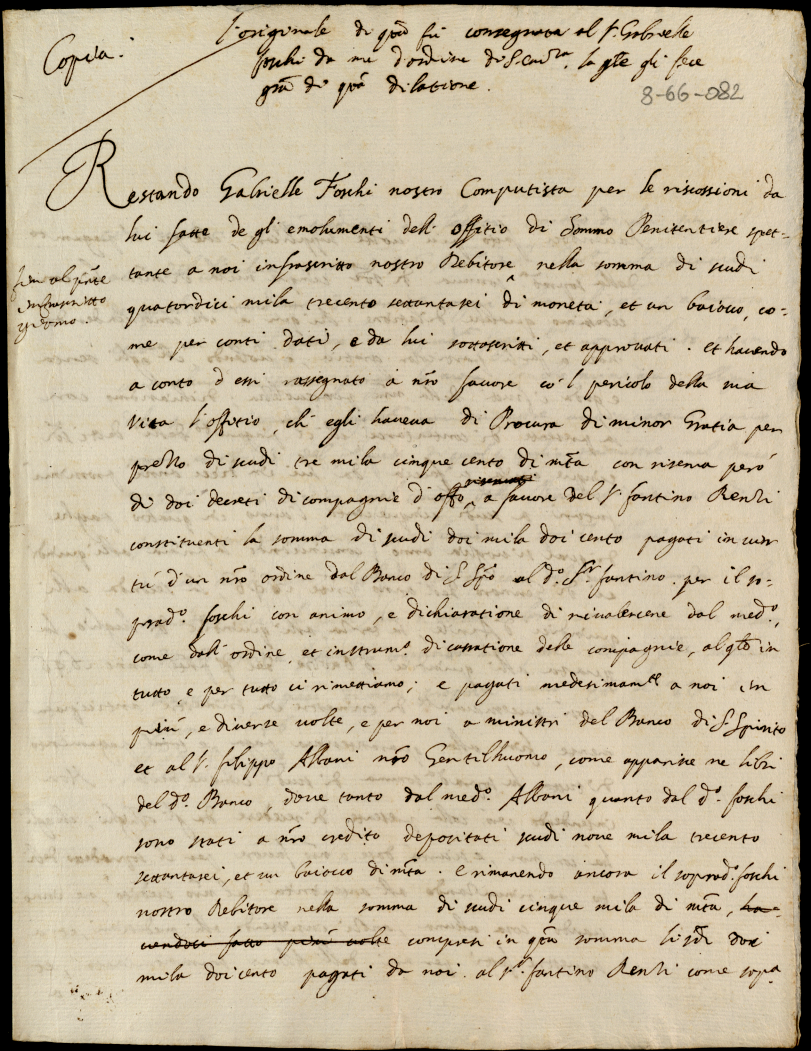 Copia.
l'originale di q̃ta fù consegnata al S.r Gabrielle
foschi da me d'ordine di S. Em.za, la q̃le gli fece
gr̃a di q̃ta dilatione.
8-66-082
Restando Gabrielle Foschi nostro Computista per le riscossioni da
lui fatte de gl'emolumenti dell'offitio di Sommo Penitentiere spet=
tante a noi infrascritto nostro Debitore nella somma di scudi
sin al p̃nte
infrascritto
giorno.
quatordici mila trecento settantasei di moneta, et un baiocco, co=
me per conti dati, e da lui sottoscritti, et approvati. et havendo
a conto d'essi rassegnato à ñro favore cò l pericolo della sua
Vita l'offitio, ch'egli haveva di Procura di minor Gratia per
prezzo di scudi tre mila cinque cento di m̃ta con riserva però
di doi decreti di compagnie d'offo. a favore del S.r fantino Renzi
constituenti la somma di scudi doi mila doi cento pagati in vir
tù d'un ñro ordine dal Banco di S. Spõ al d.o S.r fantino per il so=
prad.o foschi con animo, e dichiaratione di rivalercene dal med.o,
come dall'ordine, et instrum.o di cassatione delle compagnie, al q̃le in
tutto e per tutto ci rimettiamo; e pagati medesimam.te a noi in
più, e diverse volte, e per noi a ministri del Banco di S. Spirito
et al S.r filippo Albani ñro Gentilhuomo, come apparisce ne libri
del d.o Banco, dove tanto dal med.o Albani quanto dal d.o foschi
sono stati a ñro credito depositati scudi nove mila trecento
settantasei, et un baiocco di m̃ta. e rimanendo ancora il soprad.o foschi
nostro Debitore nella somma di scudi cinque mila di m̃ta, ha=
vendoci fatto più volte compresi in q̃ta somma li s̃di doi
mila doi cento pagati da noi al S.r fantino Renzi come sop.a